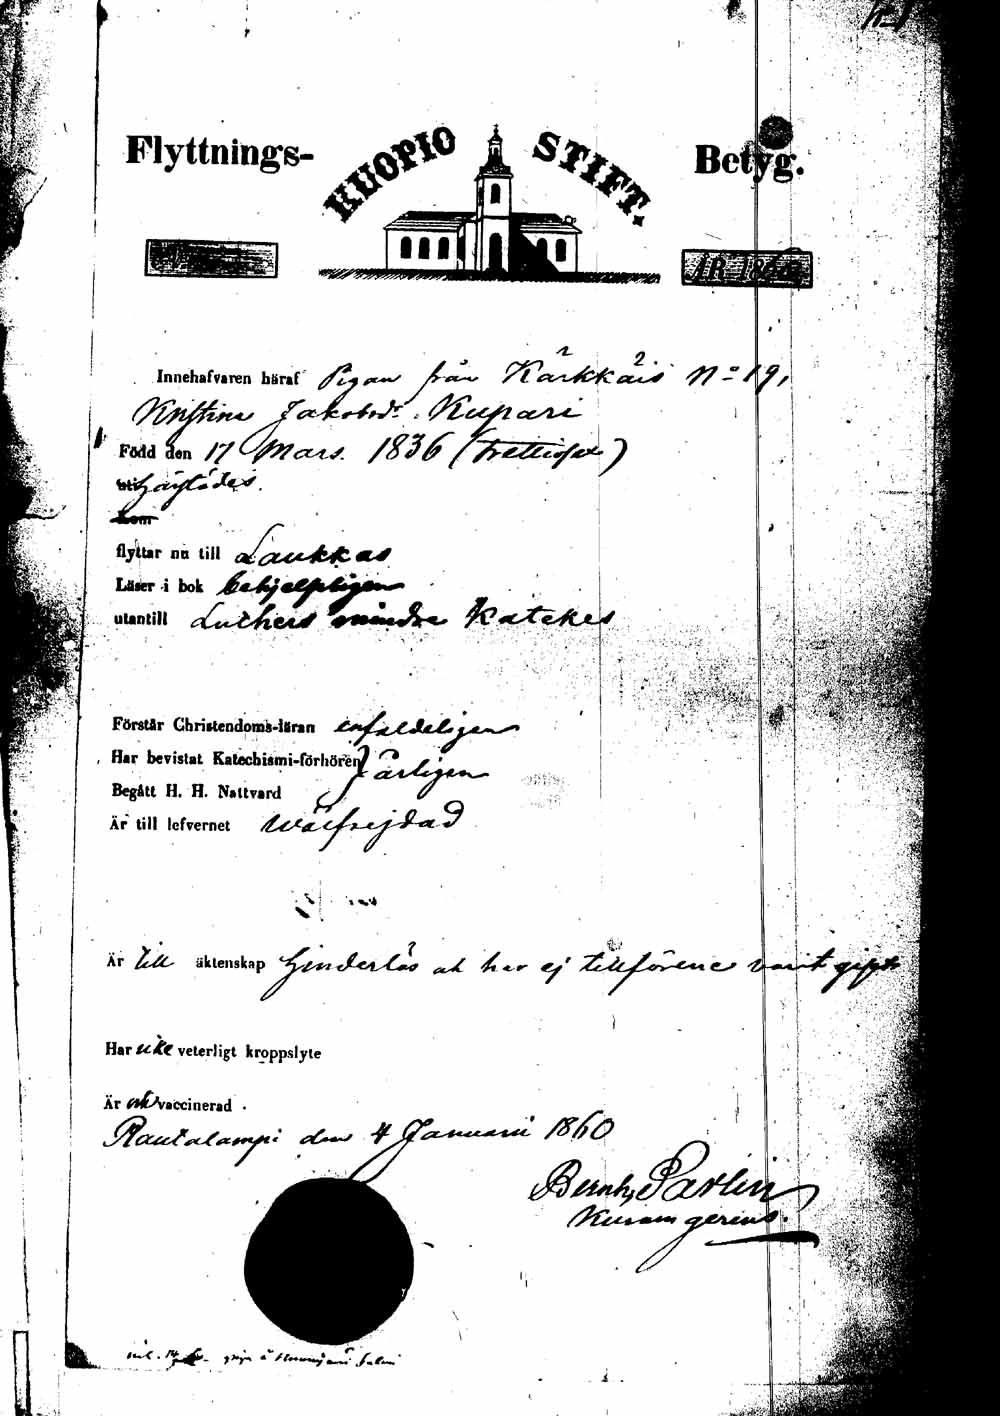 Flyttnings- KUOPIO STIFT. Betyg.
ÅR 1860
Innehafvaren häraf Pigan från Kärkkäis No 19,
Kristina Jakobsdr. Kupari
Född den 17 Mars. 1836 (trettiosex)
härstädes.
flyttar nu till Laukkas
Läser i bok behjelpligen
utantill Luthers mindre Katekes
Förstår Christendoms-läran enfaldeligen
Har bevistat Katechismi-förhören } årligen
Begått H. H. Nattvard
Är till lefvernet wälfrejdad
Är till äktenskap hinderlös och har ej tillförene varit gift
Har icke veterligt kroppslyte
Är vaccinerad.
Rautalampi den 4 Januari 1860
Bernh. Sarlin
Kuram gerens.